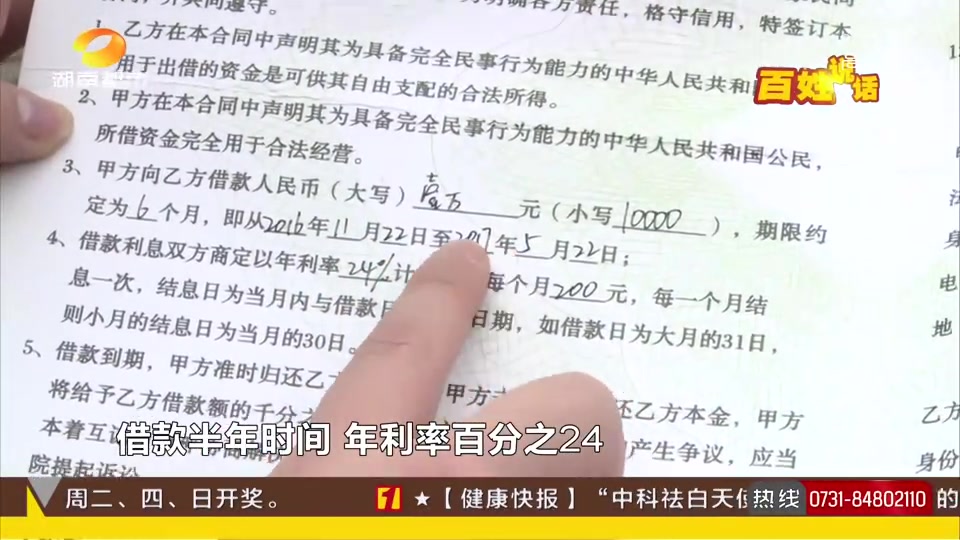 明确各方责任，格守信用，特签订本
1、乙方在本合同中声明其为具备完全民事行为能力的中华人民共和国
用于出借的资金是可供其自由支配的合法所得。
2、甲方在本合同中声明其为具备完全民事行为能力的中华人民共和国公民，
所借资金完全用于合法经营。
3、甲方向乙方借款人民币（大写）壹万元（小写10000），期限约
定为6个月，即从2016年11月22日至2017年5月22日；
4、借款利息双方商定以年利率24%计 每个月200元，每一个月结
息一次，结息日为当月内与借款 日期，如借款日为大月的31日，
则小月的结息日为当月的30日。
5、借款到期，甲方准时归还乙方 甲方 还乙方本金，甲方
将给予乙方借款额的千分
本着互 产生争议，应当
院提起诉讼
身
电
地
乙方
身份
湖南都市
百姓说话
借款半年时间 年利率百分之24
周二、四、日开奖。 ★【健康快报】“中科祛白天使
热线 0731-84802110 的